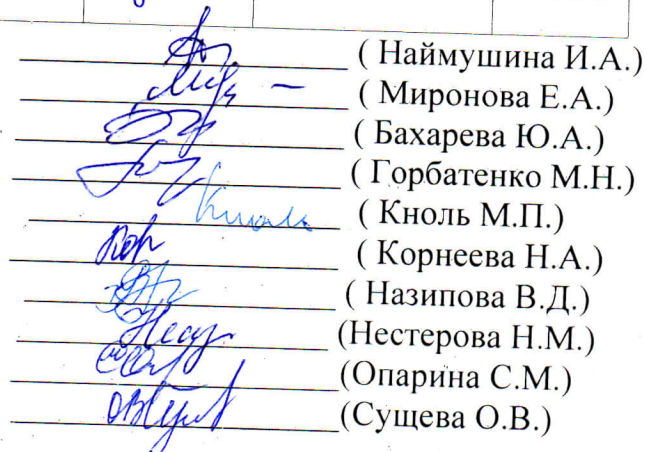 ( Наймушина И.А.)
( Миронова Е.А.)
( Бахарева Ю.А.)
( Горбатенко М.Н.)
Кноль ( Кноль М.П.)
( Корнеева Н.А.)
( Назипова В.Д.)
(Нестерова Н.М.)
(Опарина С.М.)
(Сущева О.В.)